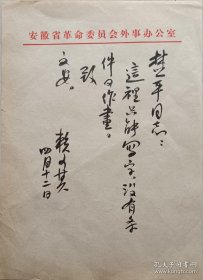 安徽省革命委员会外事办公室
楚平同志：
這裡只能写字，没有条
件日作畫。
致
文安。
赖少其
四月十二日